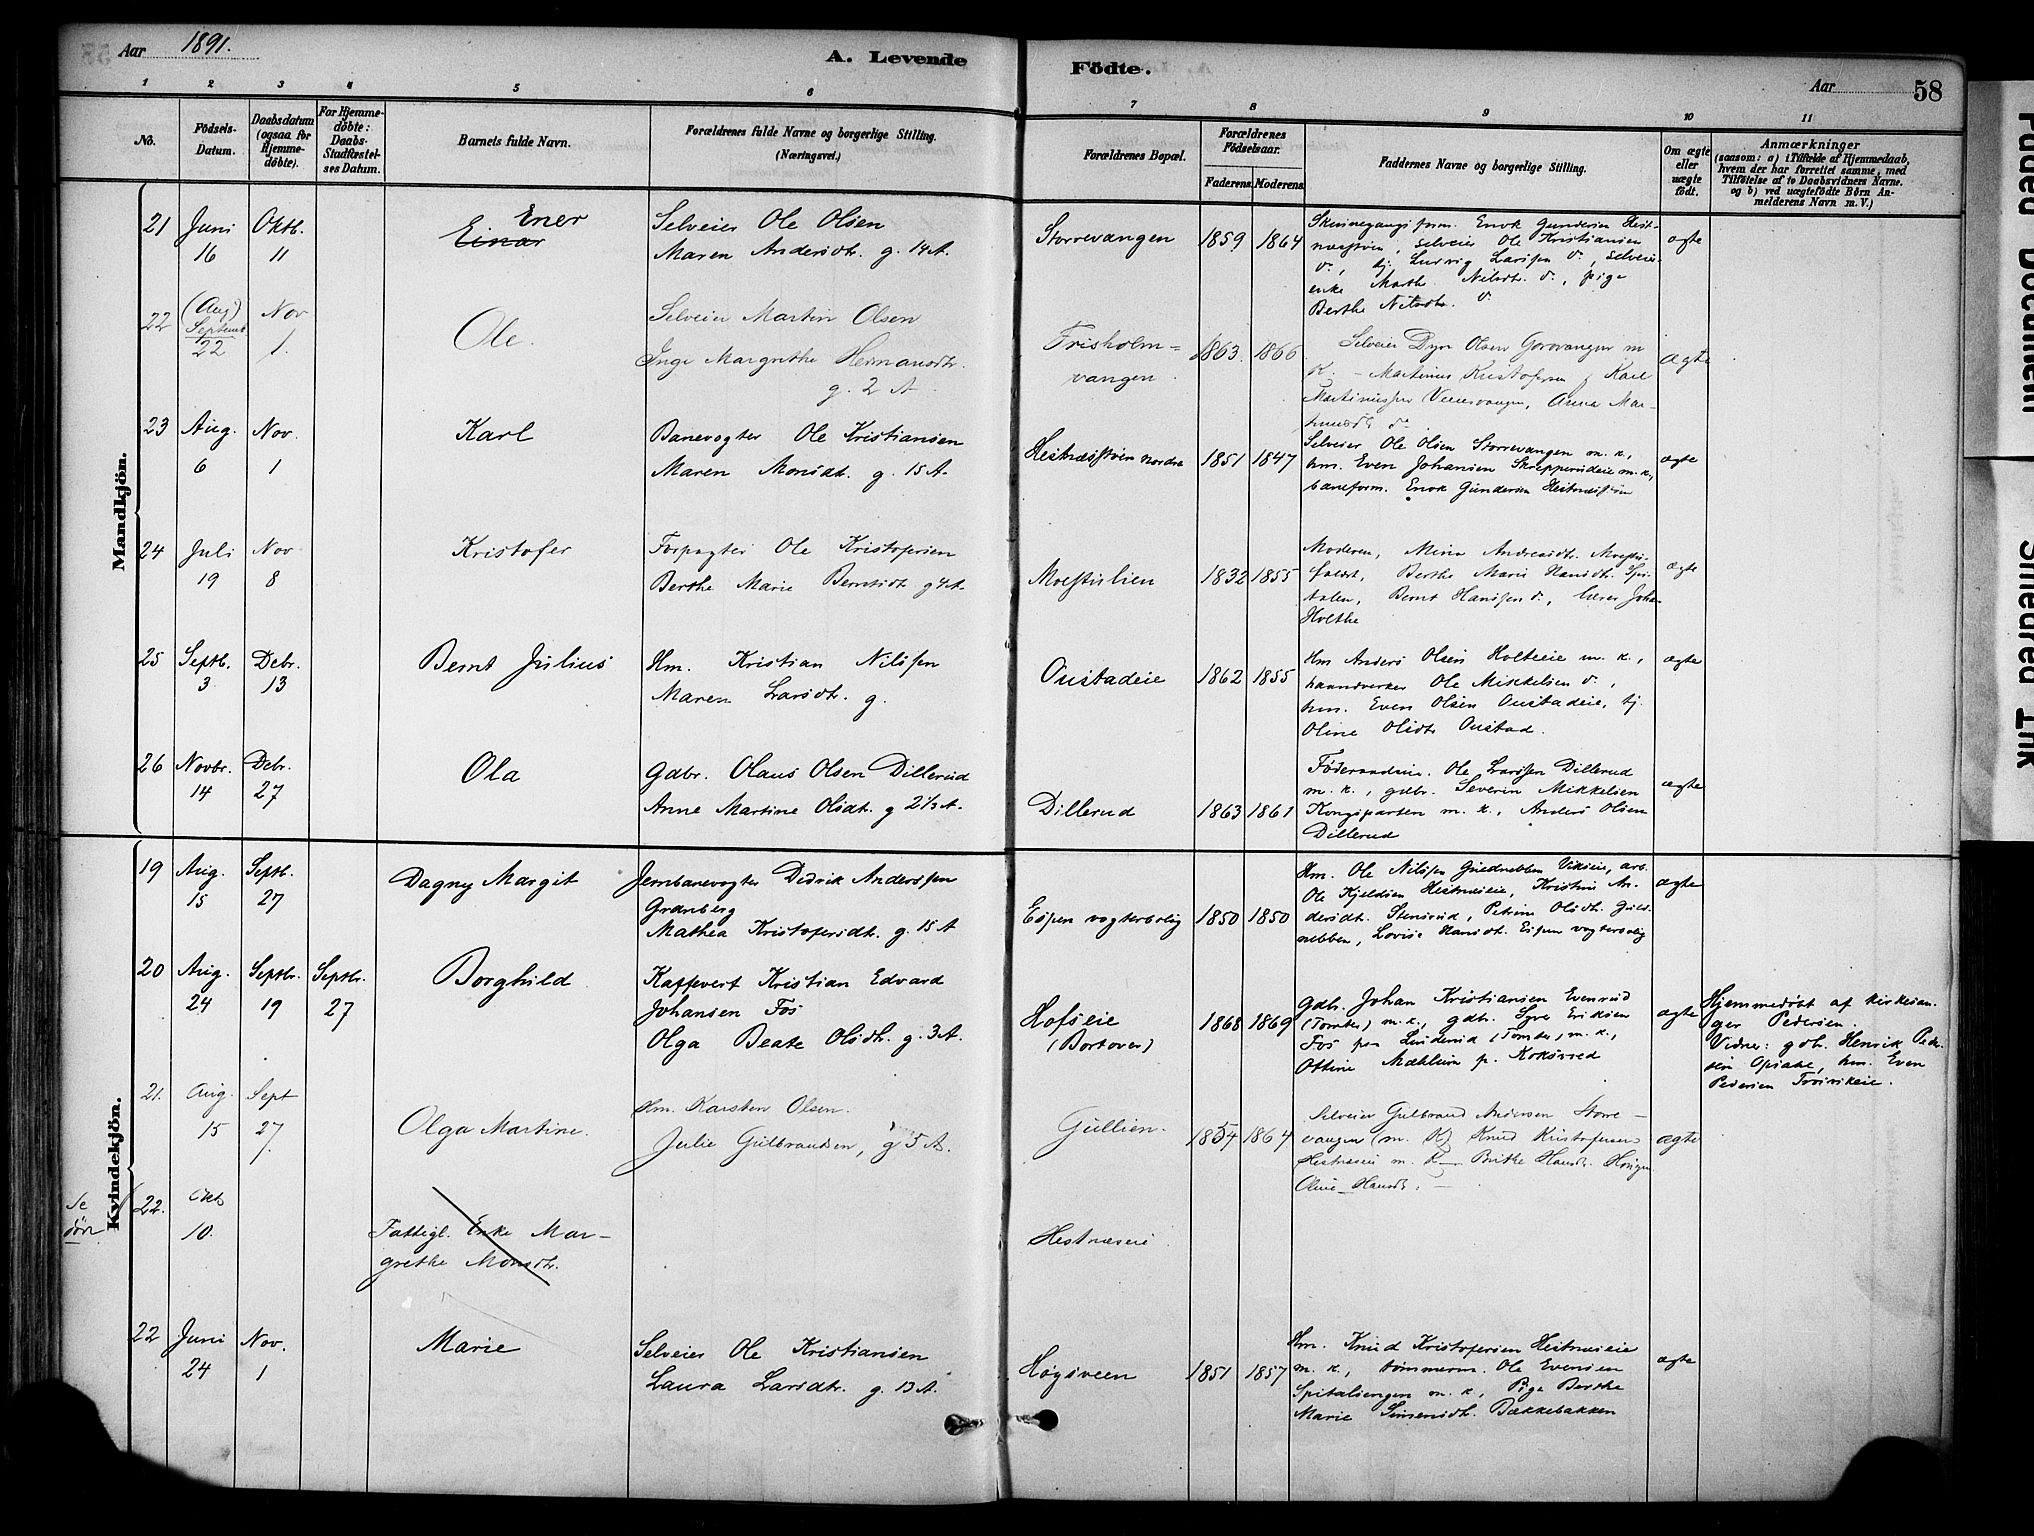 Aar 1891.
A. Levende Födte.
Aar 58
1 2 3 4 5 6 7 8 9 10 11
No.
Födsels-Datum.
Daabsdatum (ogsaa for Hjemme-döbte).
For Hjemme-döbte: Daabs-Stadfæstel-ses Datum.
Barnets fulde Navn.
Forældrenes fulde Navne og borgerlige Stilling. (Næringsvei.)
Forældrenes Bopæl.
Forældrenes Födselsaar.
Faderens Moderens
Faddernes Navne og borgerlige Stilling.
Om ægte eller uægte födt.
Anmærkninger
(saasom: a) i Tilfælde af Hjemmedaab, hvem der har forrettet samme, med Tilföielse af to Daabsvidners Navne. og b) ved uægtefödte Börn An-melderens Navn m. V.)
Mandkjön.
21 Juni 16 Oktb. 11
Ener
Einar
Selveier Ole Olsen
Maren Andersdtr. g. 14 A.
Storrevangen 1859 1864
Enok Gundersen
selveier Ole Kristiansen
Ludvig Larssen
enke Marthe Nilsdtr. d., pige
Berthe Nilsdtr. d
ægte
22 (Aug) Septemb 22 Nov 1.
Ole.
Selveier Martin Olsen
Inge Margrethe Hermansdtr.
g. 2 A
Frisholm=
vangen 1863. 1866
Selveier Dyre Olsen Gorovangen m
K. – Martinus Kristofersen Karl
Martinussen Anna Mar-
ægte
23 Aug. 6 Nov. 1
Karl
Banevogter Ole Kristiansen
Maren Monsdt. g. 15 A.
Hestnæsstven nordre 1851 1847
Selveier Ole Olsen Storrevangen m. k.,
hm. Even Johansen Skrepperudeie m. k,
baneform. Enok Gundersen
ægte
24 Juli 19 Nov 8
Kristofer
Forpagter Ole Kristofersen
Berthe Marie Berntsdt. g 4 A.
Moestulien 1832 1855
Moderen, Mina Andreasdt.
Berthe Marie Hansdt. Spi-
talen, Bernt Hanssen d., lærer Joha
Holthe
ægte
25 Septb. 3 Debr. 13
Bernt Julius
Hm. Kristian Nilssen
Maren Larsdtr. g.
Oustadeie 1862 1855
Hm Anders Olsen Holteeie m. k.,
haandverker Ole Mikkelsen d.,
hm. Even Olsen Oustadeie, tj.
Oline Olsdtr Oustad.
ægte
26 Novbr. 14 Debr. 27
Ola
Gdbr. Olaus Olsen Dillerud
Anne Martine Olsdt. g 2 1/2 A.
Dillerud 1863 1861
Ole Larssen Dillerud
m. k., gdbr. Severin Mikkelsen
Kongsparten m. k., Anders Olsen
Dillerud
ægte
Kvindekjön.
19 Aug. 15 Septb. 27
Dagny Margit
Jernbanevogter Didrik Anderssen
Granberg
Mathea Kristofersdt. g. 15 A
Espen vogterbolig 1850 1850
Hm. Ole Nilssen Guldnebben Vikseie, arb.
Ole Kjeldsen Hestnæseie, Kristine An-
dersdt. Stensrud, Petrine Olsdt. Guld-
nebben, Lovise Hansdt. Espen vogterbolig
ægte
20 Aug. 24 Septbr. 19 Septbr. 27
Borghild
Kaffevert Kristian Edvard
Johansen Fos
Olga Beate Olsdt. g. 3 A.
Hofseie
(Bortover) 1868 1869
Gdb. Johan Kristiansen Evenrud
(Tomter) m. k., gdb. Syver Eriksen
Fos paa Linderud (Tomter, m. k.,
Ottine Mæhlum p. Koksrud
ægte
Hjemmedøbt af kirkesan-
ger Pedersen.
Vidner: gdb. Henrik Peder-
sen Opsahl, hm. Even
Pedersen
21. Aug. 15 Sept 27.
Olga Martine.
Hm. Karsten Olsen.
Julie Gulbrandsen, g 5 A.
Gullien. 1854 1864
Selveier Gulbrand Andersen Storre-
vangen (m. K) Knud Kristofersen
Hestnæseie m. K — Berthe Hansdt.
Oline Hansdt. –
ægte
Se
døde
22. Oktb 10.
Fattigl. Enke Mar-
grethe Monsdtr.
Hestnæseie.
22 Juni 24 Nov. 1
Marie
Selveier Ole Kristiansen
Laura Larsdtr. g. 13 A.
Høgsveen 1851 1857
Hm. Knud Kristofersen Hestnæseie
m. k., tømmerm. Ole Evensen
Spitalsengen m. k., Pige Berthe
Marie Simensdt. Bækkebakken
ægte
Faded Document
Smeared Ink